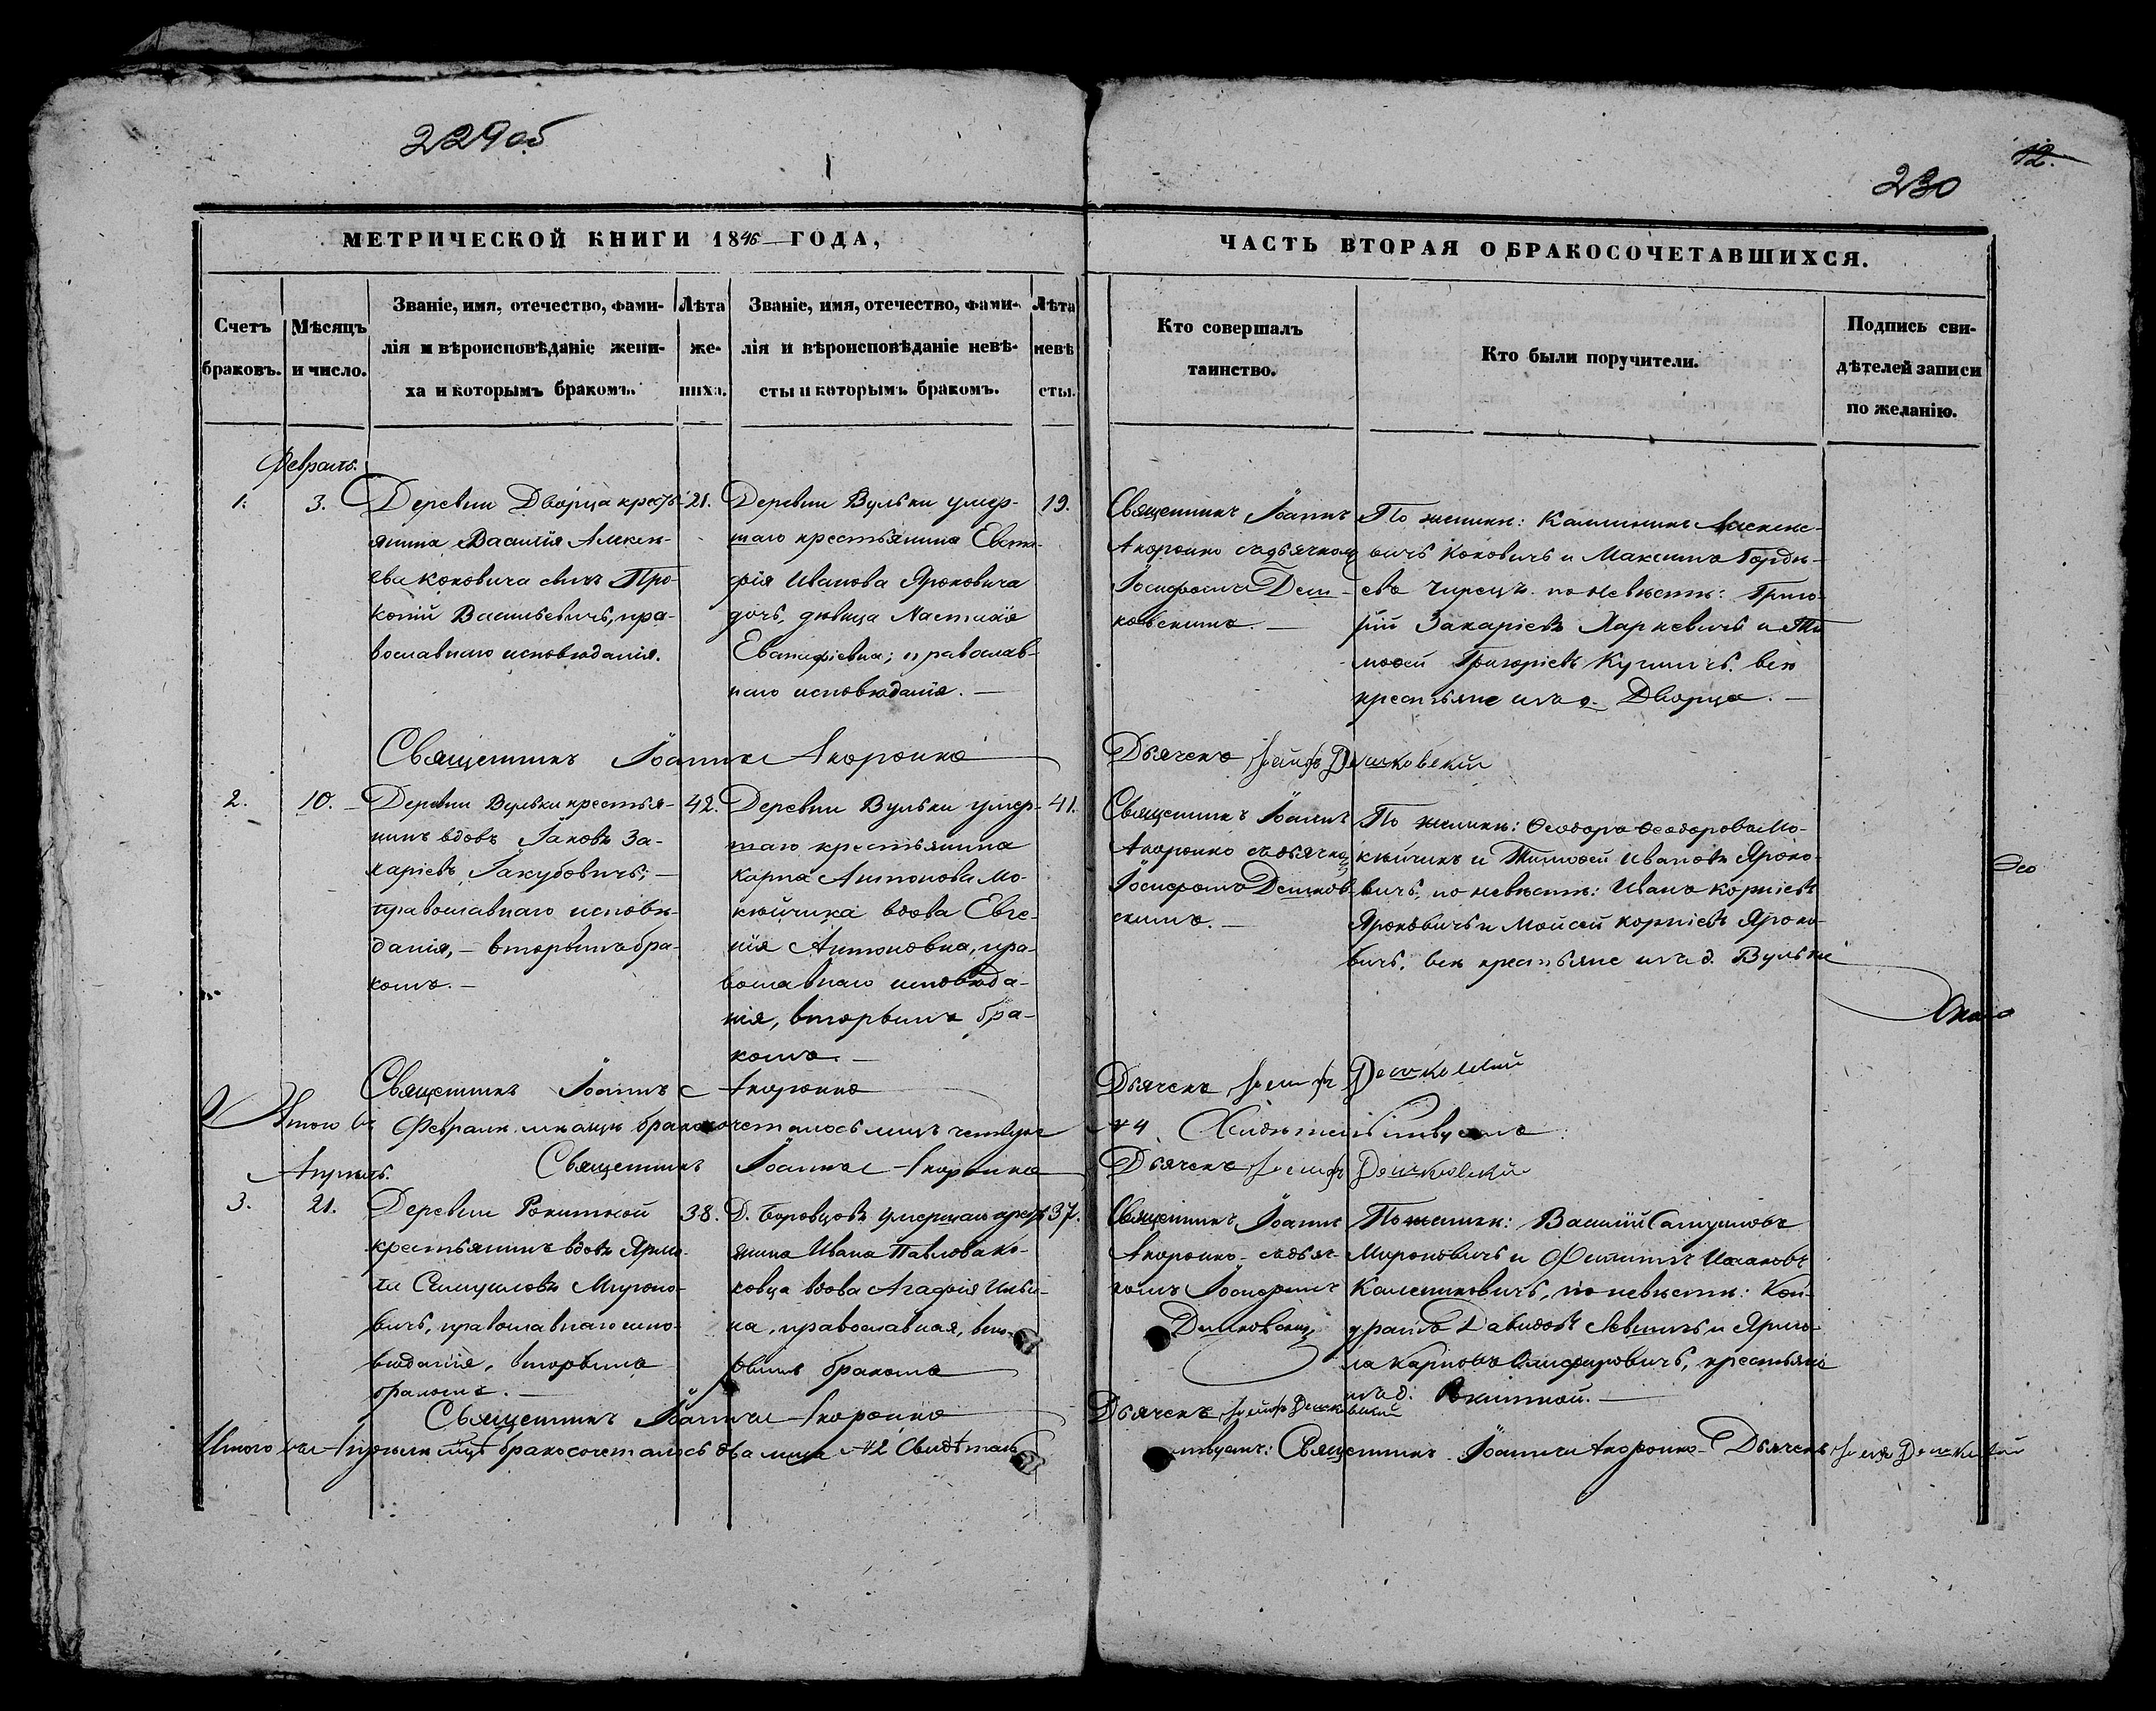 229об
12.
230
МЕТРИЧЕСКОЙ КНИГИ 1846 ГОДА,
ЧАСТЬ ВТОРАЯ О БРАКОСОЧЕТАВШИХСЯ.
Счетъ
браковъ.
Мѣсяцъ
и число.
Званіе, имя, отечество, фами-
лія и вѣроисповѣданіе жени-
ха и которымъ бракомъ.
Лѣта
же-
ниха.
Званіе, имя, отечество, фами-
лія и вѣроисповѣданіе невѣ-
сты и которымъ бракомъ.
Лѣта
невѣ
сты.
Кто совершалъ
таинство.
Кто были поручители.
Подпись сви-
дѣтелей записи
по желанію.
Февраль.
1.
3.
Деревни Дворца кресть-
янина Василія Алексѣ-
ева Коковича сынъ Про-
копій Васильевичъ, пра-
вославнаго исповѣданія.
21.
Деревни Вульки умер-
шаго крестьянина
фія Иванова Яроковича
дочь, дѣвица
православ-
наго исповѣданія.
19.
Священникъ Іоаннъ
Акоронко съ дьячкомъ
Іосифомъ Деш-
ковскимъ.
По женихѣ:
вичъ Коковичъ и Максимъ Гордѣ-
евъ по невѣстѣ: Григо-
рій Захаріевъ Харкевичъ и Ти-
моѳей Григоріевъ всѣ
крестьяне изъ д. Дворца.
Священникъ Іоаннъ Акоронко
Дьячекъ Іосифъ Дешковскій
2.
10.
Деревни Вульки крестья-
нинъ вдовъ Іаковъ За-
харіевъ Якубовичъ,
православнаго исповѣ-
данія, вторымъ бра-
комъ.
42.
Деревни Вульки умер-
шаго крестьянина
Карпа Антонова Мо-
кѣйчика вдова Евге-
нія Антоновна, пра-
вославнаго исповѣда-
нія, вторымъ бра-
комъ.
41.
Священникъ Іоаннъ
Акоронко съ дьячко
Іосифомъ Дешков-
скимъ.
По женихѣ: Ѳеодоръ Ѳеодоровъ Мо-
кѣйчикъ и Тимоѳей Ивановъ Яроко-
вичъ, по невѣстѣ: Иванъ Корніевъ
Ярокович и Моисей Корніевъ Яроко-
вичъ, всѣ крестьяне изъ д. Вульки
Священникъ Іоаннъ Акоронко
Дьячекъ Іосифъ Дешковскій
Итого въ Февралѣ мѣсяцѣ бракосочеталось лицъ четверо
№ 4
Священникъ Іоаннъ Акоронко
Дьячекъ Іосифъ Дешковскій
Апрѣль.
3.
21.
Деревни Рокитной
крестьянинъ вдовъ Ярмо-
ла Самуиловъ Мироно-
вичъ, православнаго испо-
вѣданія, вторымъ
бракомъ.
38.
Д. Боровцовъ умершаго крест
янина Ивана Павлова Ко-
ковца вдова Агафія Ильи-
на, православная, вто-
рымъ бракомъ
37.
Священникъ Іоаннъ
Акоронко съ дьяч-
комъ Іосифомъ
Дешковским
По женихѣ: Василій Самуиловъ
Мироновичъ и Филиппъ Исааковъ
Калениковичъ, по невѣстѣ: Кон-
дратъ Давидовъ Левшичъ и Ярмо-
ла Карповъ крестьяне
изъ д. Рокитной.
Священникъ Іоаннъ Акоронко
Дьячекъ Іосифъ Дешковскій
Итого въ Апрѣлѣ мцѣ бракосочеталось два лица № 2 Свидѣтель-
ствуемъ: Священникъ Іоаннъ Акоронко Дьячекъ Іосифъ Дешковскій